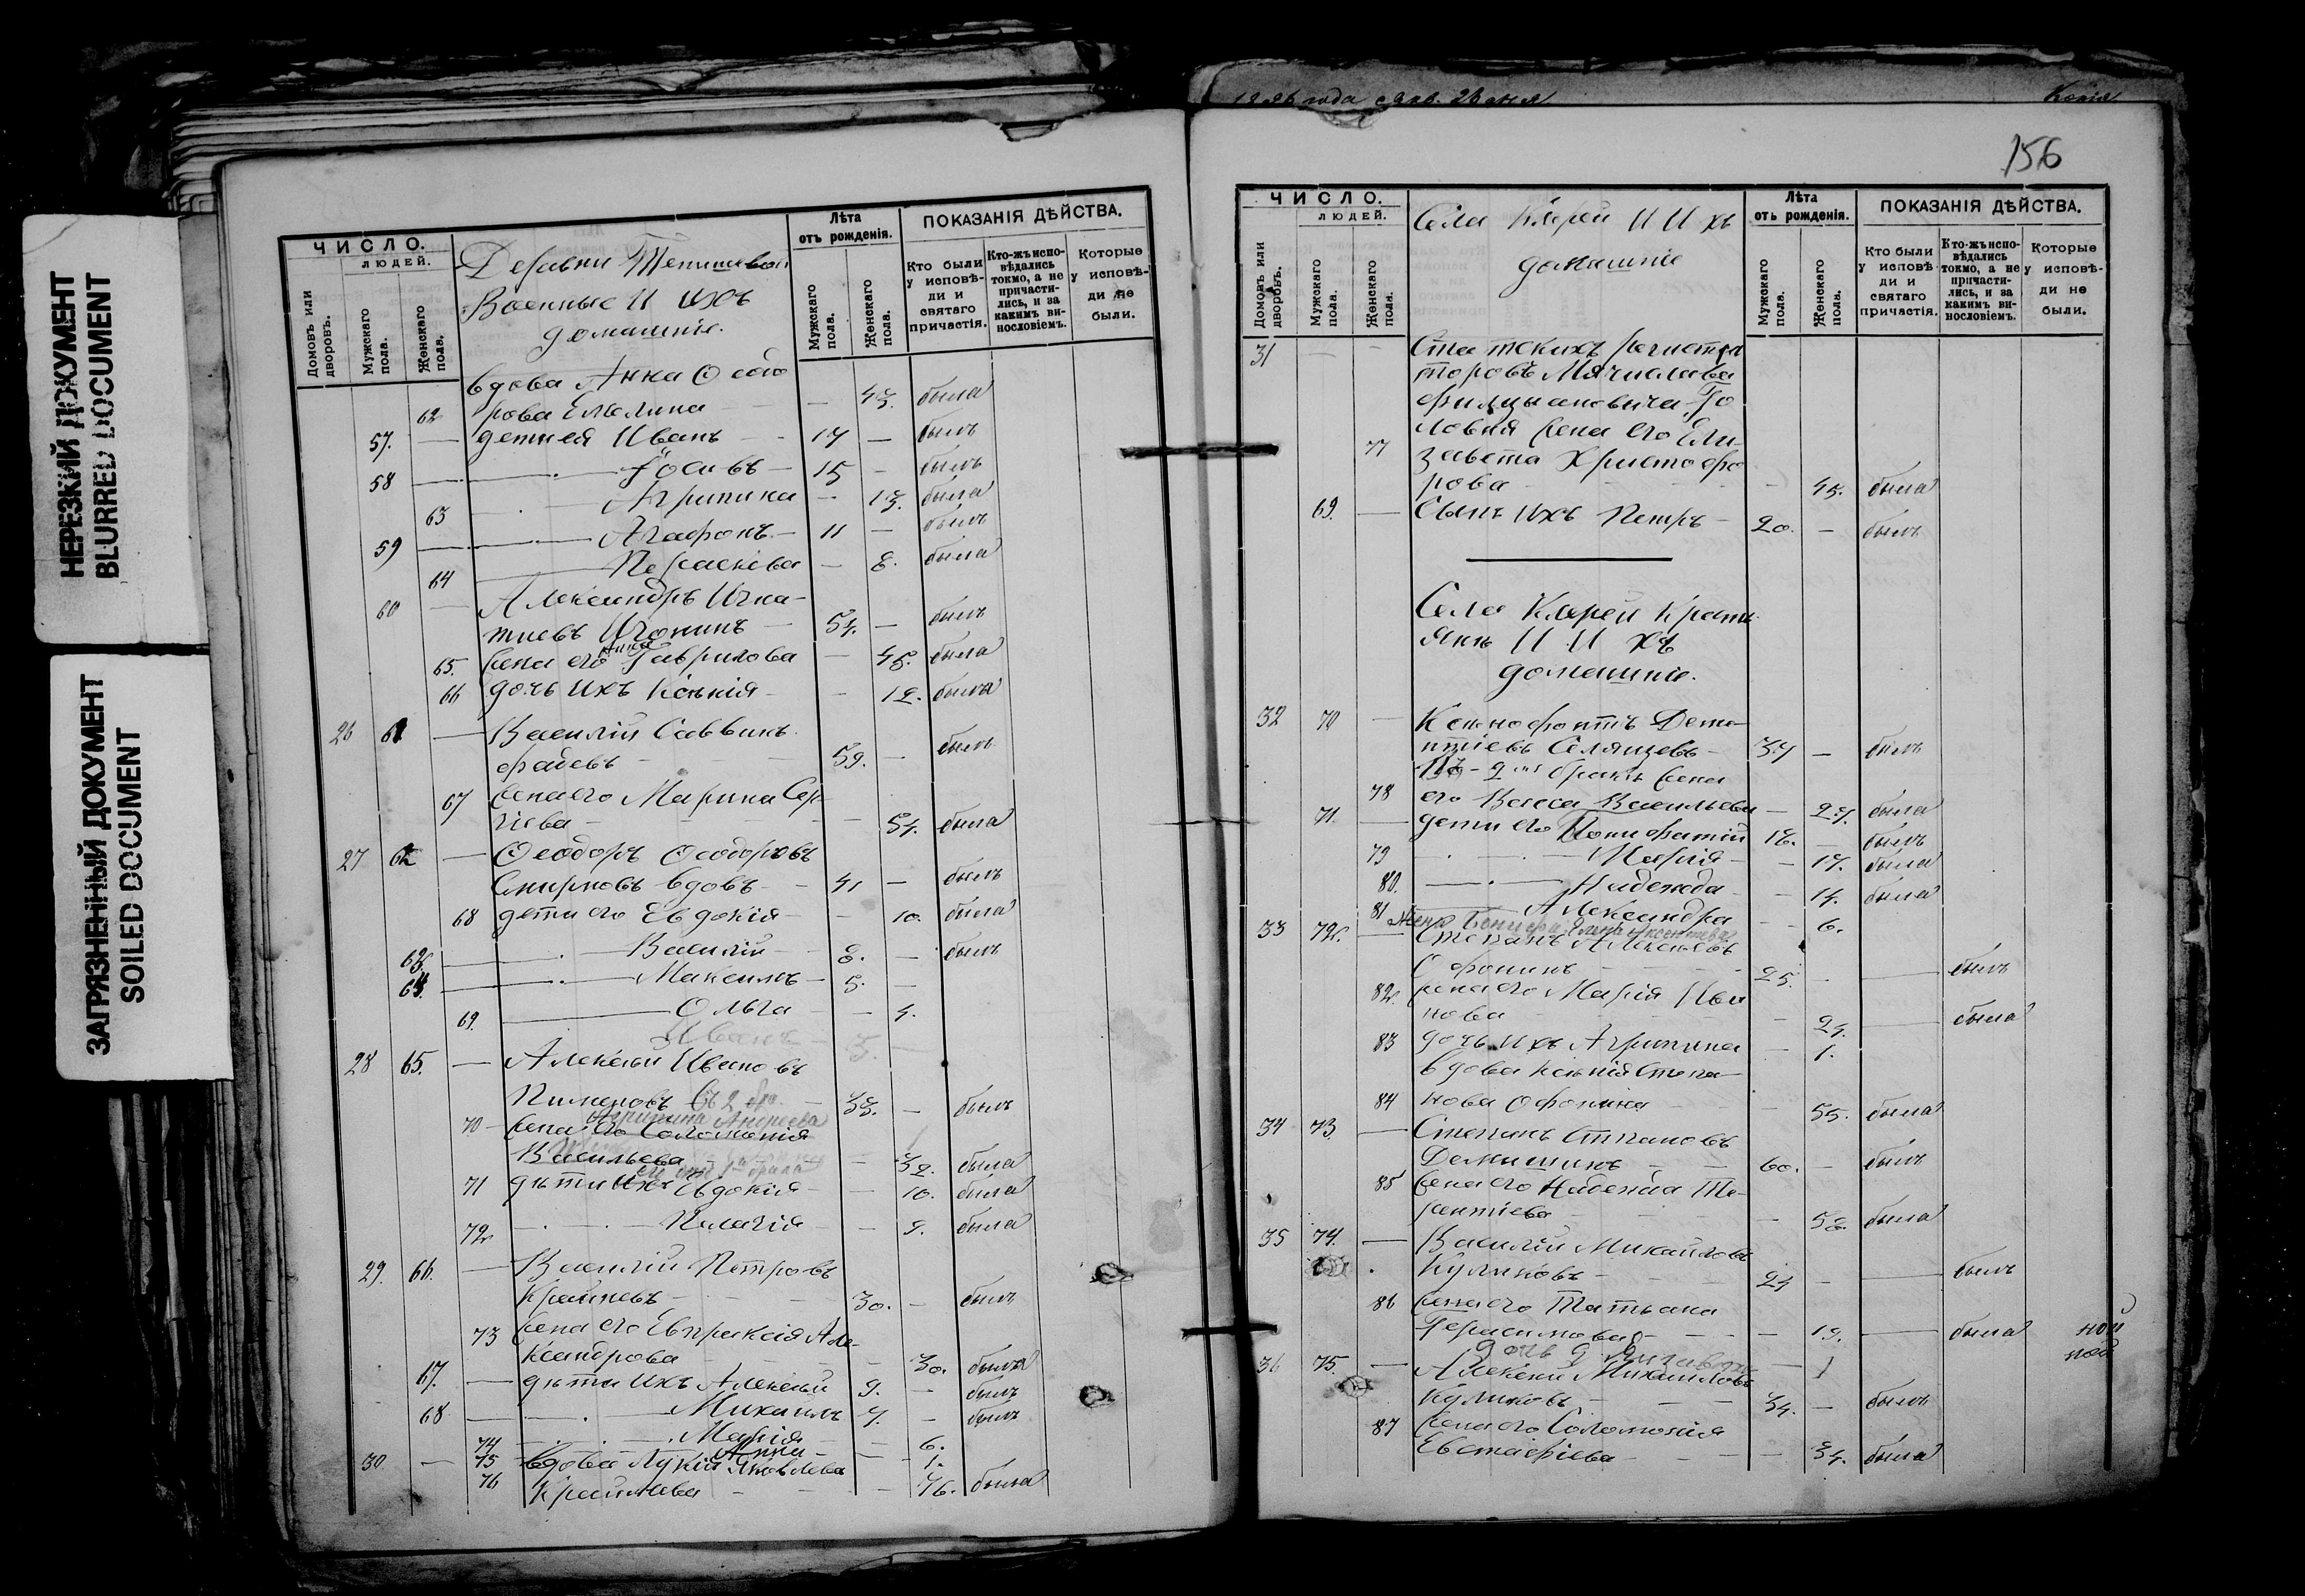 НЕРЕЗКИЙ ДОКУМЕНТ
BLURRED DOCUMENT
ЗАГРЯЗНЕННЫЙ ДОКУМЕНТ
SOILED DOCUMENT
ЧИСЛО.
ЛЮДЕЙ.
Домовъ или дворовъ.
Мужскаго пола.
Женскаго пола.
Деревни
Военные и ихъ
домашніе.
Лѣта
отъ рожденія.
Мужскаго пола.
Женскаго пола.
ПОКАЗАНІЯ ДѢЙСТВА.
Кто были у исповѣди и святаго причастія.
Кто-жъ исповѣдались токмо, а не причастились, и за какимъ винословіемъ.
Которые у исповѣди не были.
вдова Анна Ѳеодо
62 рова — была
57. — дети ея Иванъ — 17 — былъ
58 — 15 — былъ
63 — Агрипина — 13. была
59 — Агафонъ — 11 — былъ
64 — Параскева — 8. была
60 — Александръ Игна-
тиевъ — 54. — былъ
65. жена его Анна Гаврилова — 45. была
66 дочь ихъ Ксенія — 12. была
26 61 — Василій Саввинъ
59. — былъ
67 жена его Марина Сер-
гіева — 54. была
27 62 — Ѳеодоръ Ѳеодоровъ
Смирновъ вдовъ — 41 — былъ
68 дети его Евдокія — 10. была
63. — Василій — 8. — былъ
64. — Максимъ — 5. —
69. — Ольга — 4.
Иванъ 3.
28 65. — Алексей Ивановъ
Пименовъ — 33. — былъ
Агрипина Андреева
70 жена его Соломонія
Васильева — 32. была
71 дѣти ихъ Евдокія — 10. была
72 — Пелагія — 9. была
29. 66. — Василій Петровъ
Крайневъ — 30. — былъ
73 жена его Евпраксія Але-
ксандрова — 30. была
67. — дѣти ихъ Алексей 9. — былъ
68 — Михаилъ 7. — былъ
74 — Марія — 6.
75 — Анна — 1.
30 — 76 вдова Лукія Яковлева
Крайнева — 76. была
Копія
156
ЧИСЛО.
ЛЮДЕЙ.
Домовъ или дворовъ.
Мужскаго пола.
Женскаго пола.
Села и ихъ
домашніе
Лѣта
отъ рожденія.
Мужскаго пола.
Женскаго пола.
ПОКАЗАНІЯ ДѢЙСТВА.
Кто были у исповѣди и святаго причастія.
Кто-жъ исповѣдались токмо, а не причастились, и за какимъ винословіемъ.
Которые у исповѣди не были.
31 — —
77 жена его Ели-
завета Христофо
рова — 45. была
69. — Сынъ ихъ Петръ — 20. — былъ
Села Кресть
янъ и ихъ
домашніе.
32 70 — Ксенофонтъ Деме-
нтіевъ — 37 — былъ
78 2 брака жена
его Васса Васильева — 27. была
71. — дети его Бонифатій 18. — былъ
79 — Марія — 17. была
80. — Надежда — 14. была
81 — Александра — 6.
33 72. — Степанъ Алексеевъ
Офонинъ — 25. — былъ
82. жена его Марія Ива
нова — 24. — была
83 дочь ихъ Агрипина — 1.
вдова Ксенія Степа-
84 нова Офонина — 55. была
34 73. — Степанъ Степановъ
60. — былъ
85 жена его Надежда Те-
рентіева — 58. была
35 74. — Василій Михайловъ
Куликовъ — 24 — былъ
86 жена его Татьяна
Герасимова — 19. — была
1
36 75. — Алексей Михайловъ
Куликовъ — 34. — былъ
87 жена его Соломонія
Евстафіева — 34. была